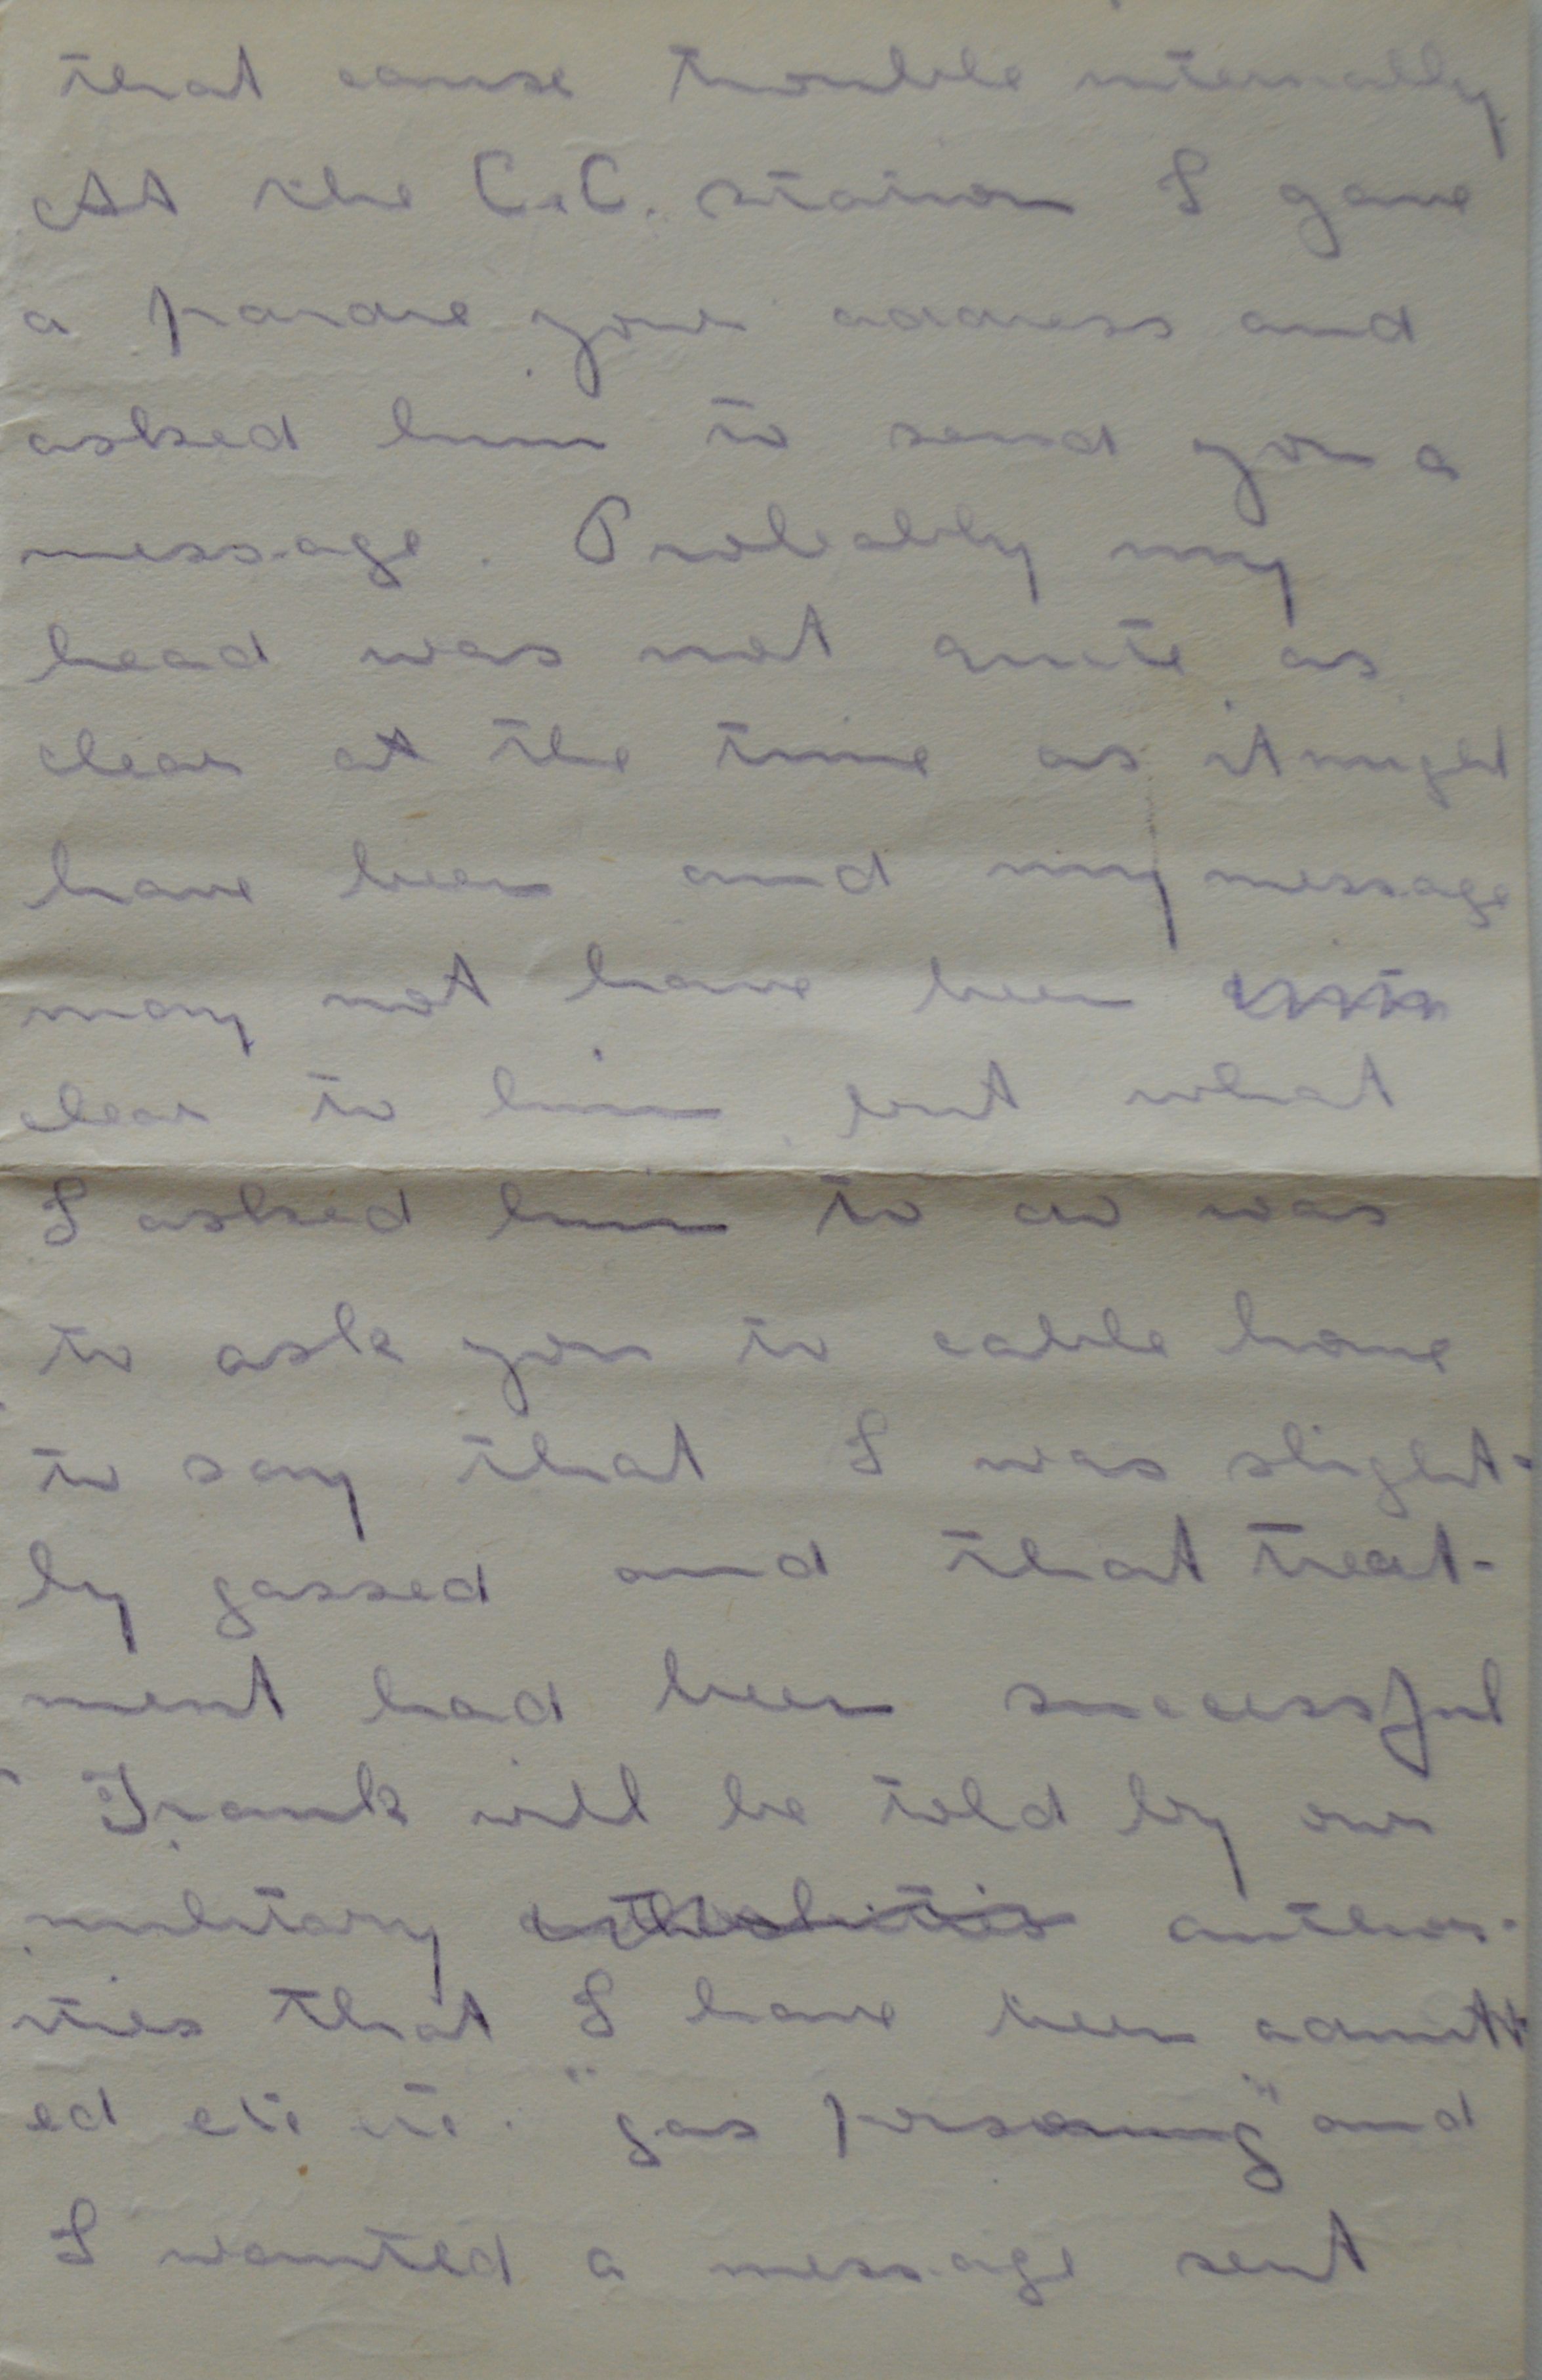 that cause trouble internally
At the C.C. station I gave
a padre your address and
asked him to send you a
message. Probably my
head was not quite as
clear at the time as it might
have been and my message
may not have been
clear to him, but what
I asked him to do was
to ask you to cable home
to say that I was slight-
ly gassed and that treat-
ment had been successful
Frank will be told by our
military author-
ities that I have been admitt-
ed etc etc. "gas poisoning" and
I wanted a message sent